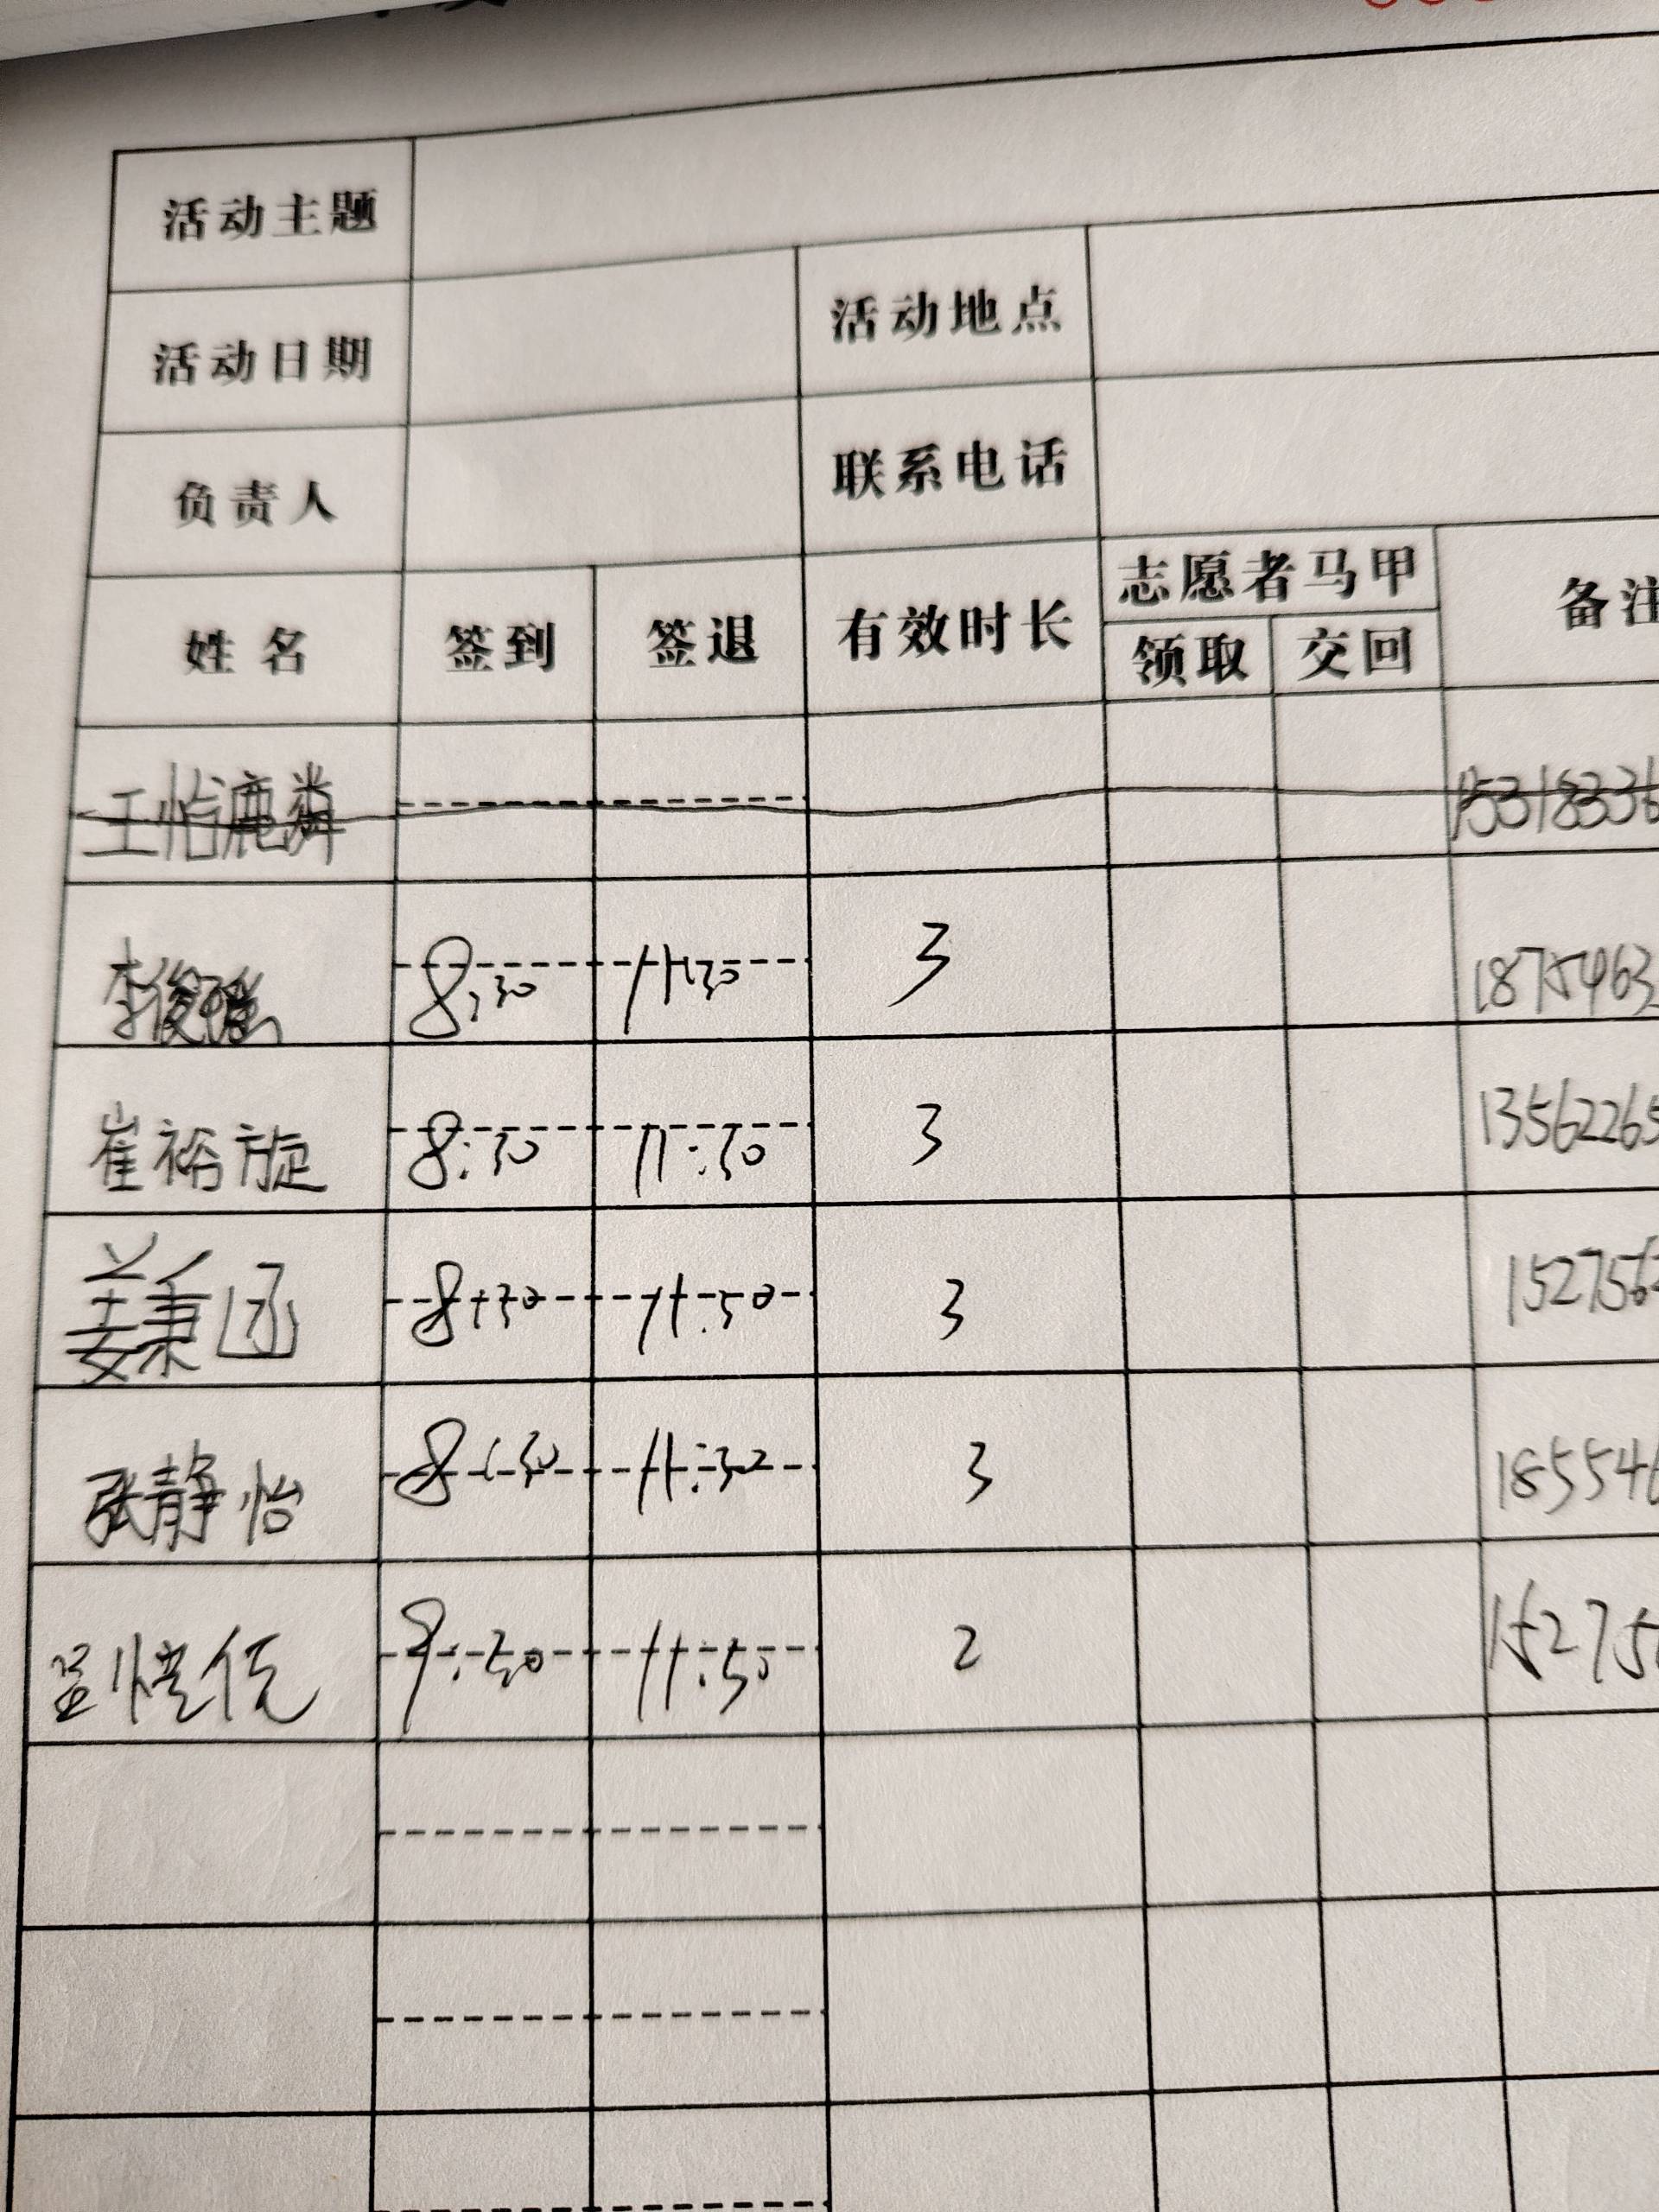 活动主题
活动日期 活动地点
负责人 联系电话
姓名 签到 签退 有效时长 志愿者马甲 备注
领取 交回
王怡鹿粦 1531833
李俊 8:30 11:30 3 1875463
崔裕旋 8:30 11:30 3 13562265
姜秉函 8:30 11:30 3 152756
张静怡 8:30 11:30 3 185546
9:30 11:30 2 15275